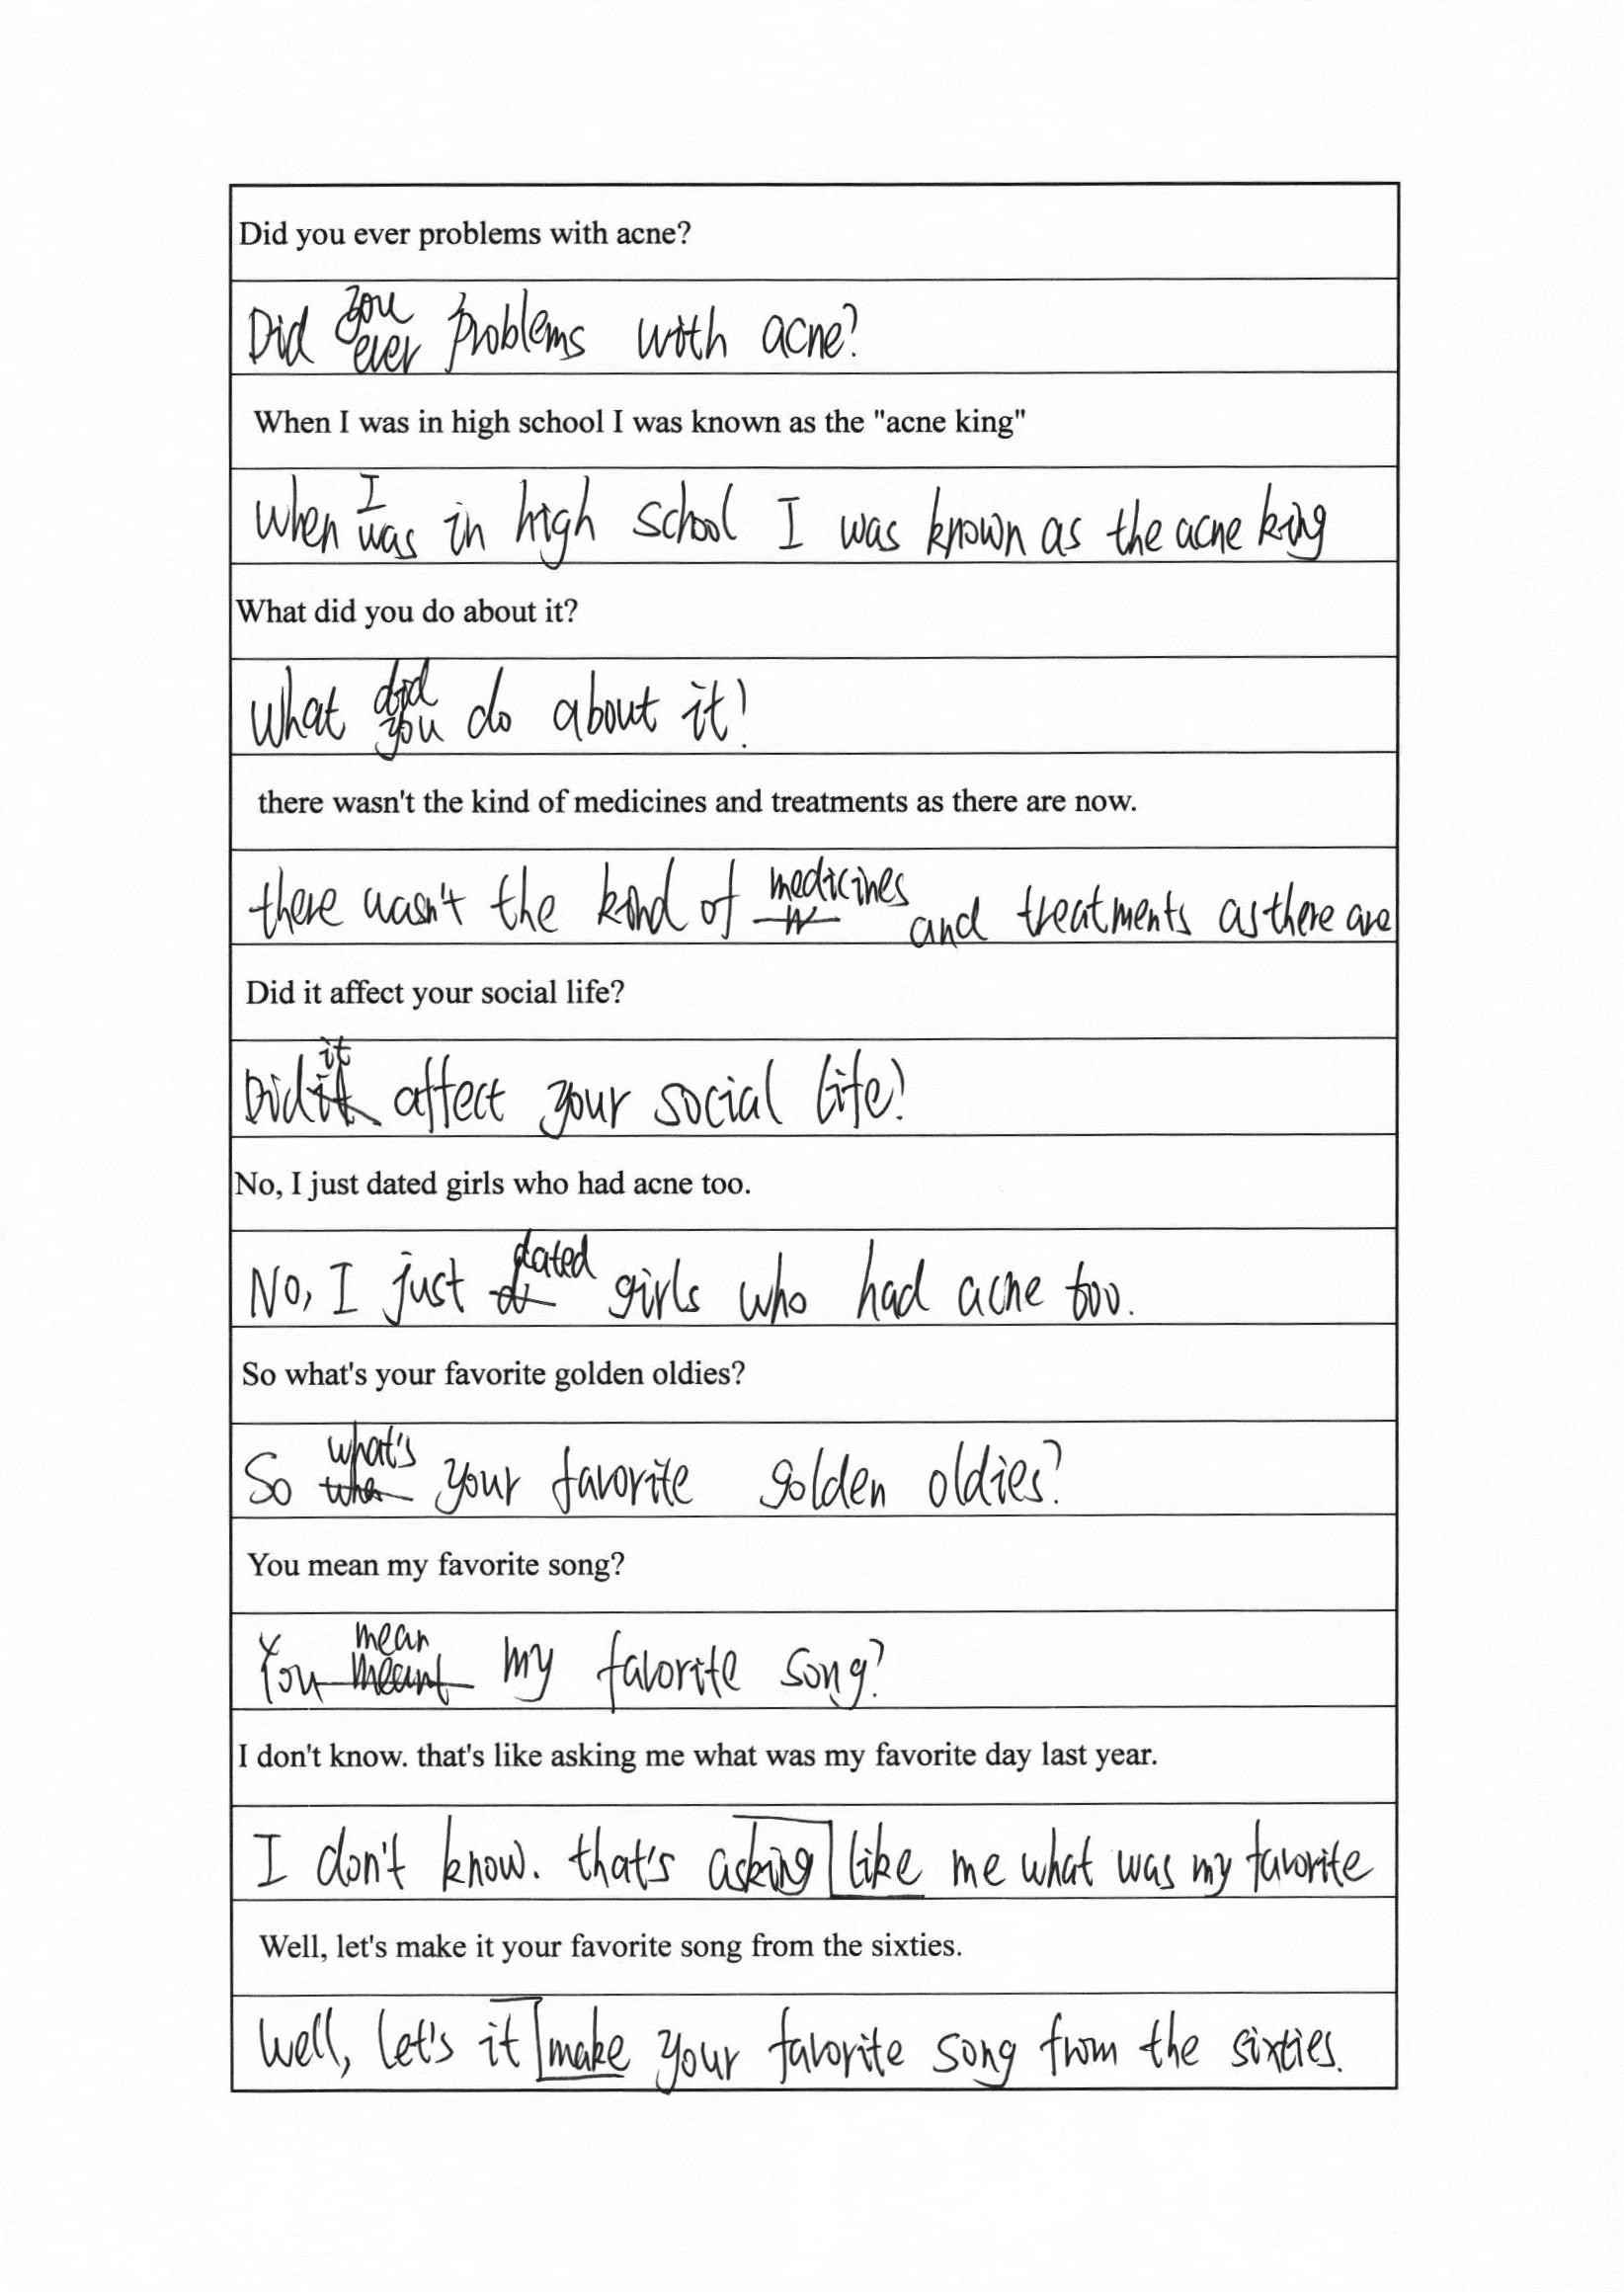 Did you ever problems with acne?
Did you ever problems with acne?
When I was in high school I was known as the "acne king"
when I was in high school I was known as the acne king
What did you do about it?
what did you do about it?
there wasn't the kind of medicines and treatments as there are now.
there wasn't the kind of medicines and treatments as there are
Did it affect your social life?
Did it affect your social life?
No, I just dated girls who had acne too.
No, I just dated girls who had acne too.
So what's your favorite golden oldies?
So what's your favorite golden oldies?
You mean my favorite song?
You mean my favorite song?
I don't know. that's like asking me what was my favorite day last year.
I don't know. that's asking like me what was my favorite
Well, let's make it your favorite song from the sixties.
Well, let's it make your favorite song from the sixties.